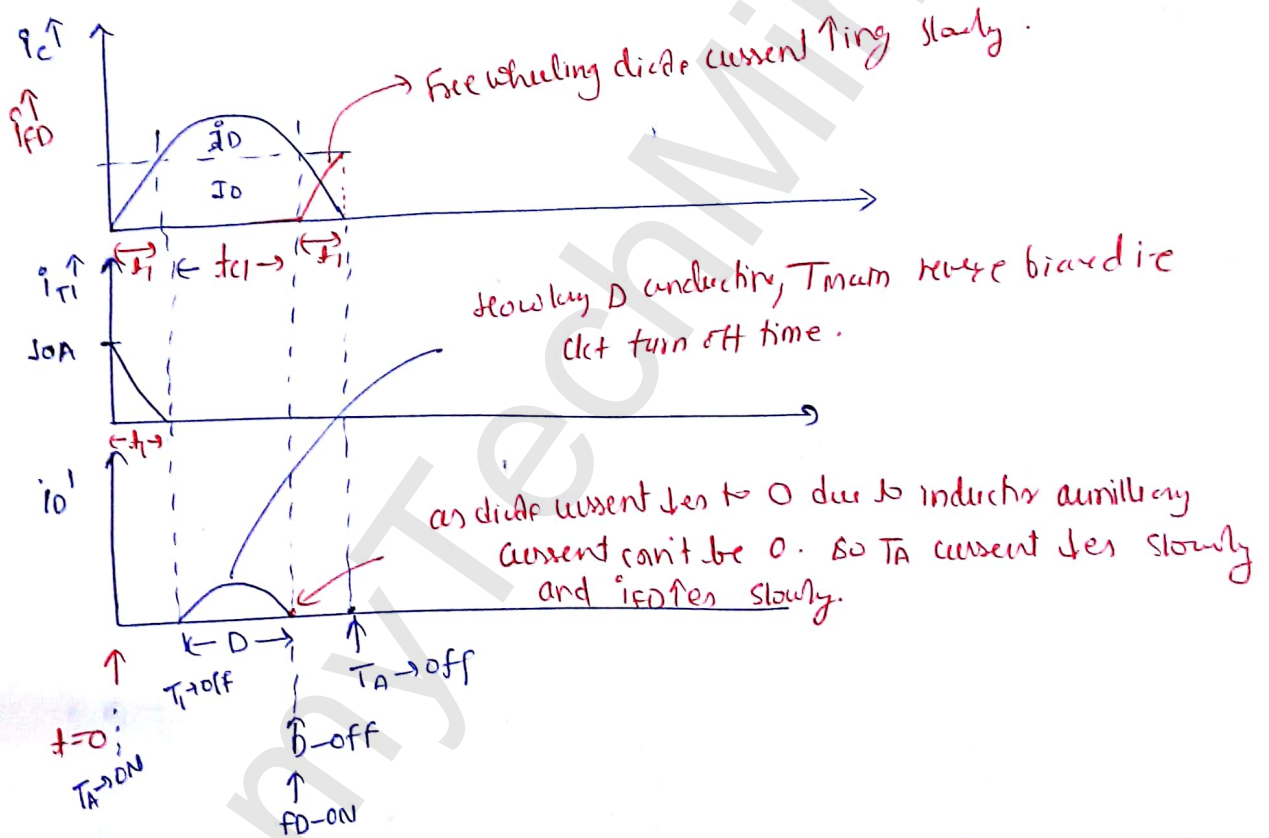 ic↑
iFD↑
→ Free wheeling diode current ↑ing slowly.
iD
I0
t1
← tc1 →
t1
iT1↑
How long D conducting, Tmain reverse biased i.e
ckt turn off time.
t1
iD'
as diode current ↓es to 0 due to inductor auxilliary
current can't be 0. so TA current ↓es slowly
and iFD↑es slowly.
← D →
T1→off
TA→off
t=0
TA→ON
D-off
FD-ON
myTechMin